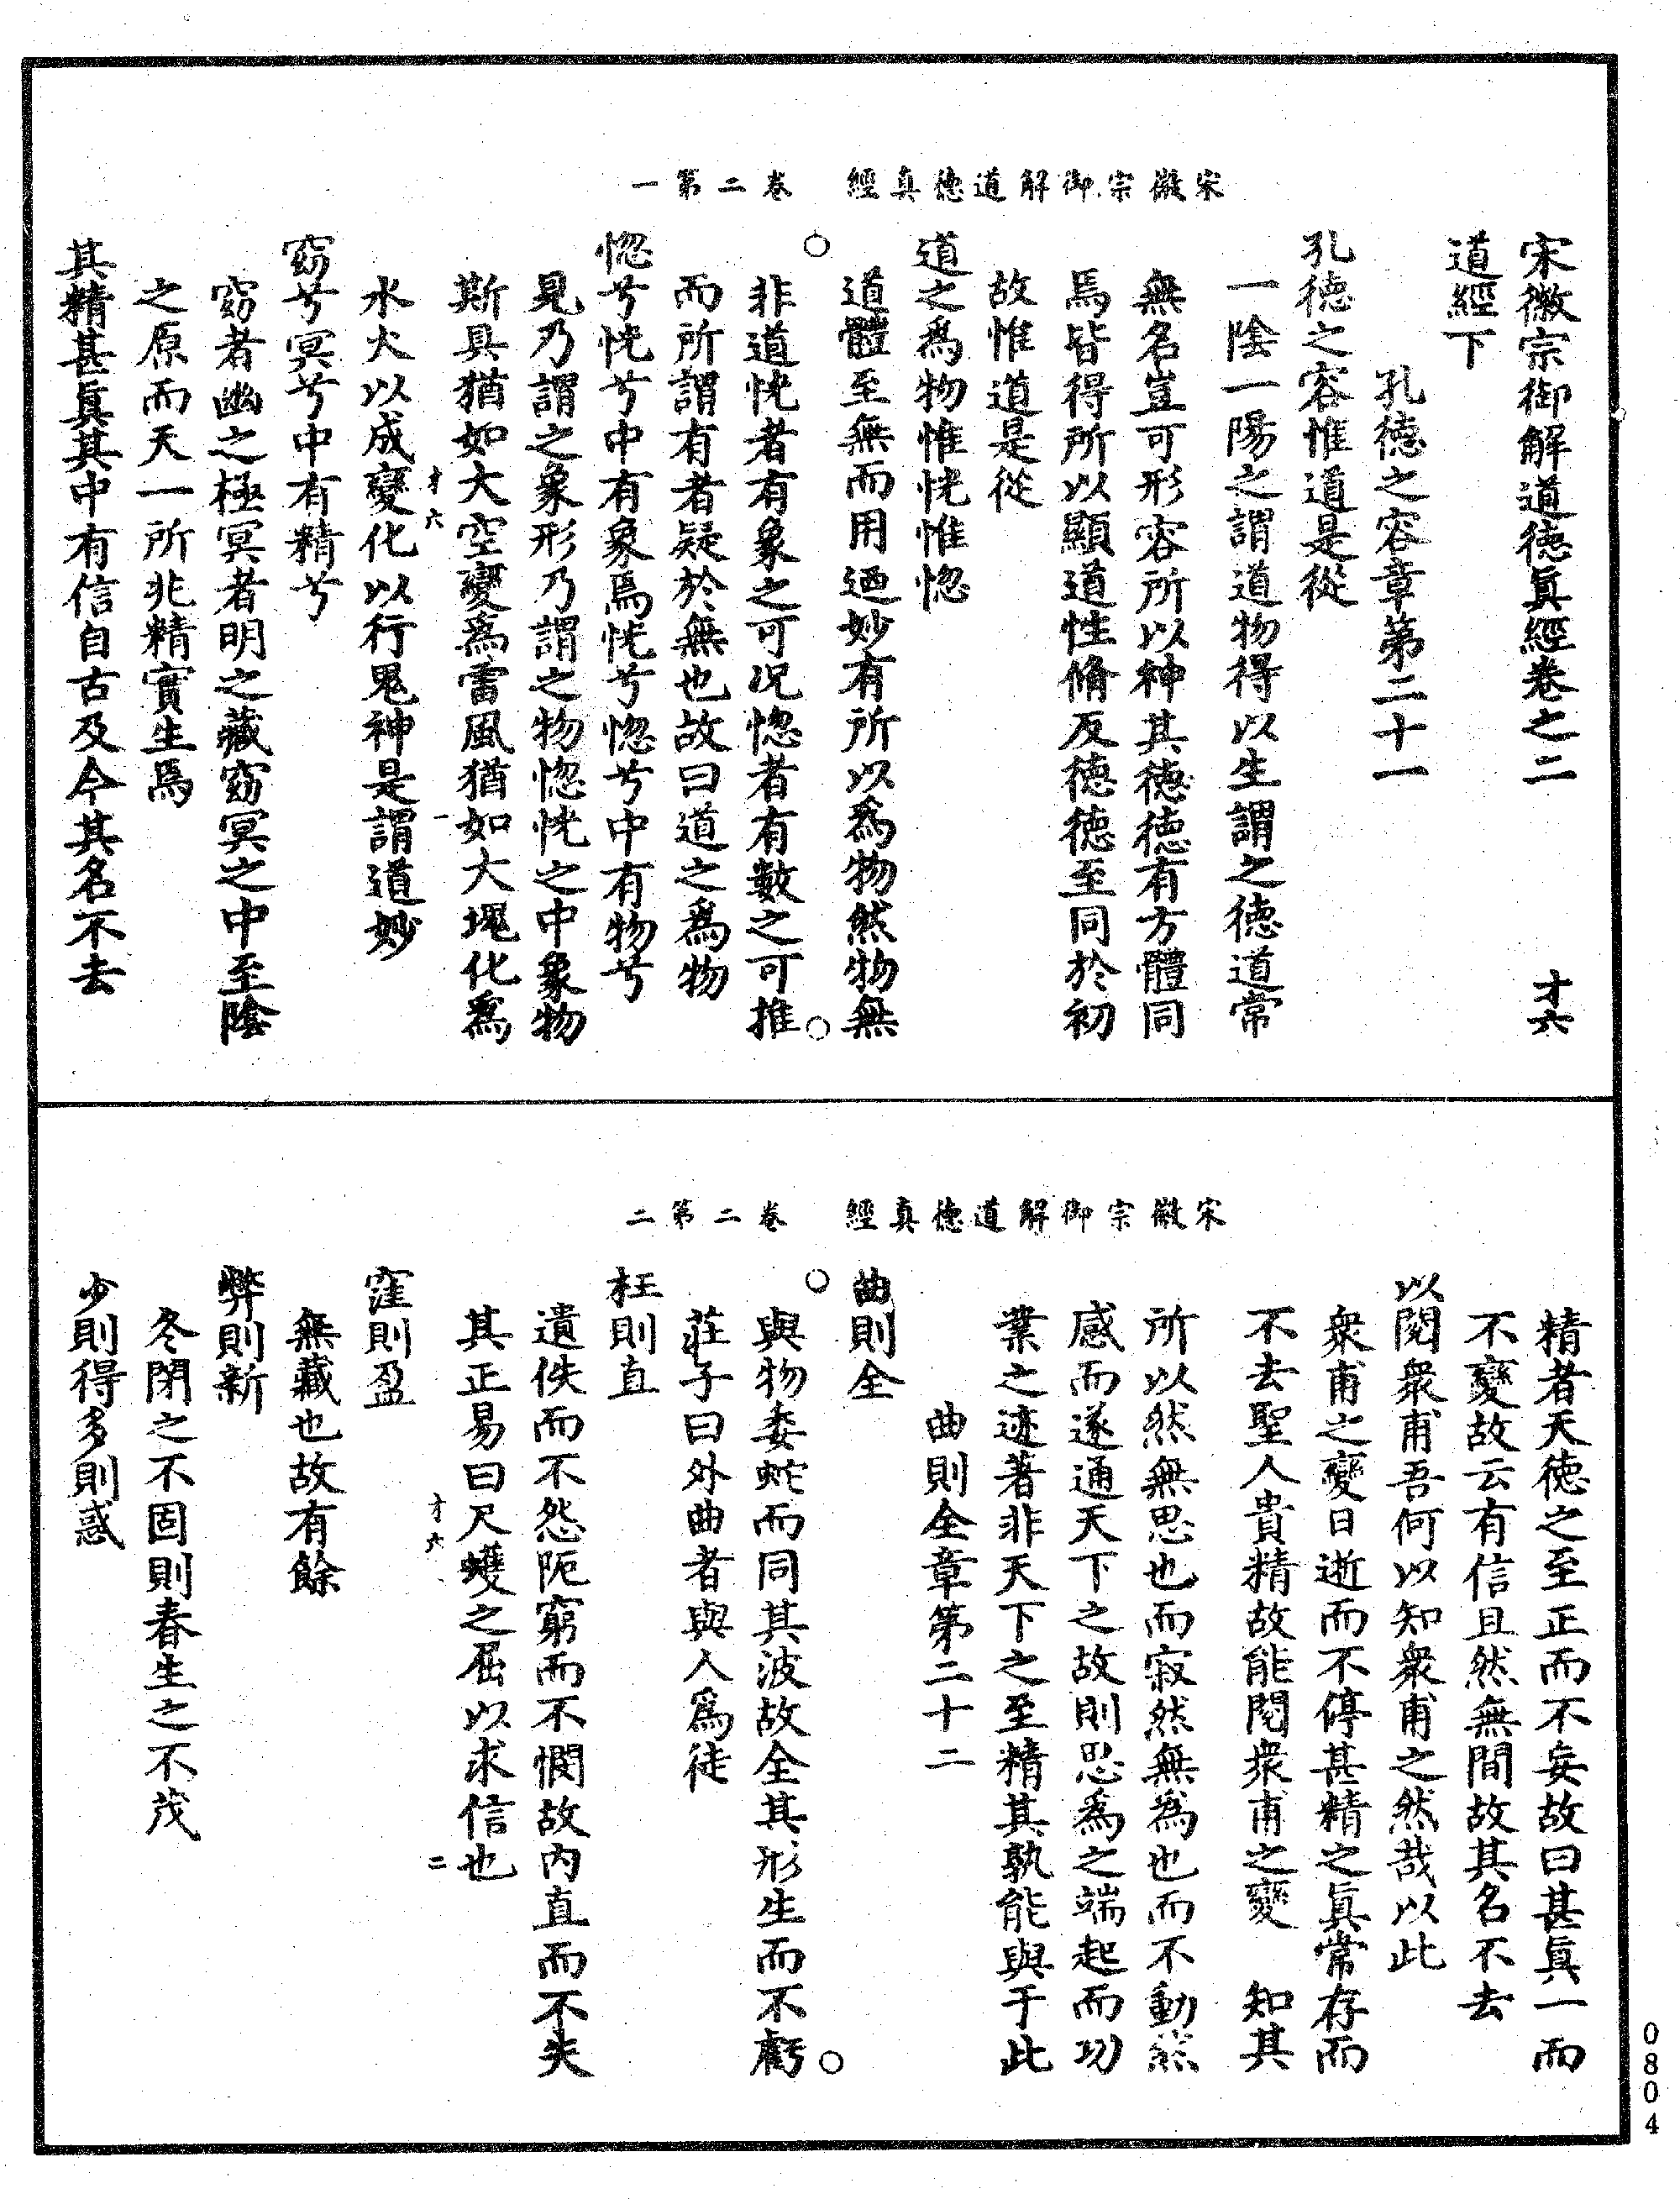 宋徽宗御解道德真經　卷二第一
宋徽宗御解道德真經卷之二　才六
道經下
孔德之容章第二十一
孔德之容惟道是從
一陰一陽之謂道物得以生謂之德道常
無名豈可形容所以神其德德有方體同
焉皆得所以顯道性脩反德德至同於初
故惟道是從
道之為物惟恍惟惚
道體至無而用迺妙有所以為物然物無
非道恍者有象之可況惚者有數之可推
而所謂有者疑於無也故曰道之為物
惚兮恍兮中有象焉恍兮惚兮中有物兮
見乃謂之象形乃謂之物惚恍之中象物
斯具猶如大空變為雷風猶如大塊化為
才六　一
水火以成變化以行鬼神是謂道妙
窈兮冥兮中有精兮
窈者幽之極冥者明之藏窈冥之中至陰
之原而天一所兆精實生焉
其精甚真其中有信自古及今其名不去
宋徽宗御解道德真經　卷二第二
精者天德之至正而不妄故曰甚真一而
不變故云有信且然無間故其名不去
以閱衆甫吾何以知衆甫之然哉以此
衆甫之變日逝而不停甚精之真常存而
不去聖人貴精故能閱衆甫之變　知其
所以然無思也而寂然無為也而不動然
感而遂通天下之故則思為之端起而功
業之迹著非天下之至精其孰能與于此
曲則全章第二十二
曲則全
與物委蛇而同其波故全其形生而不虧
莊子曰外曲者與人為徒
枉則直
遺佚而不怨阨窮而不憫故內直而不失
其正易曰尺蠖之屈以求信也
才六　二
窪則盈
無藏也故有餘
弊則新
冬閉之不固則春生之不茂
少則得多則惑
0804